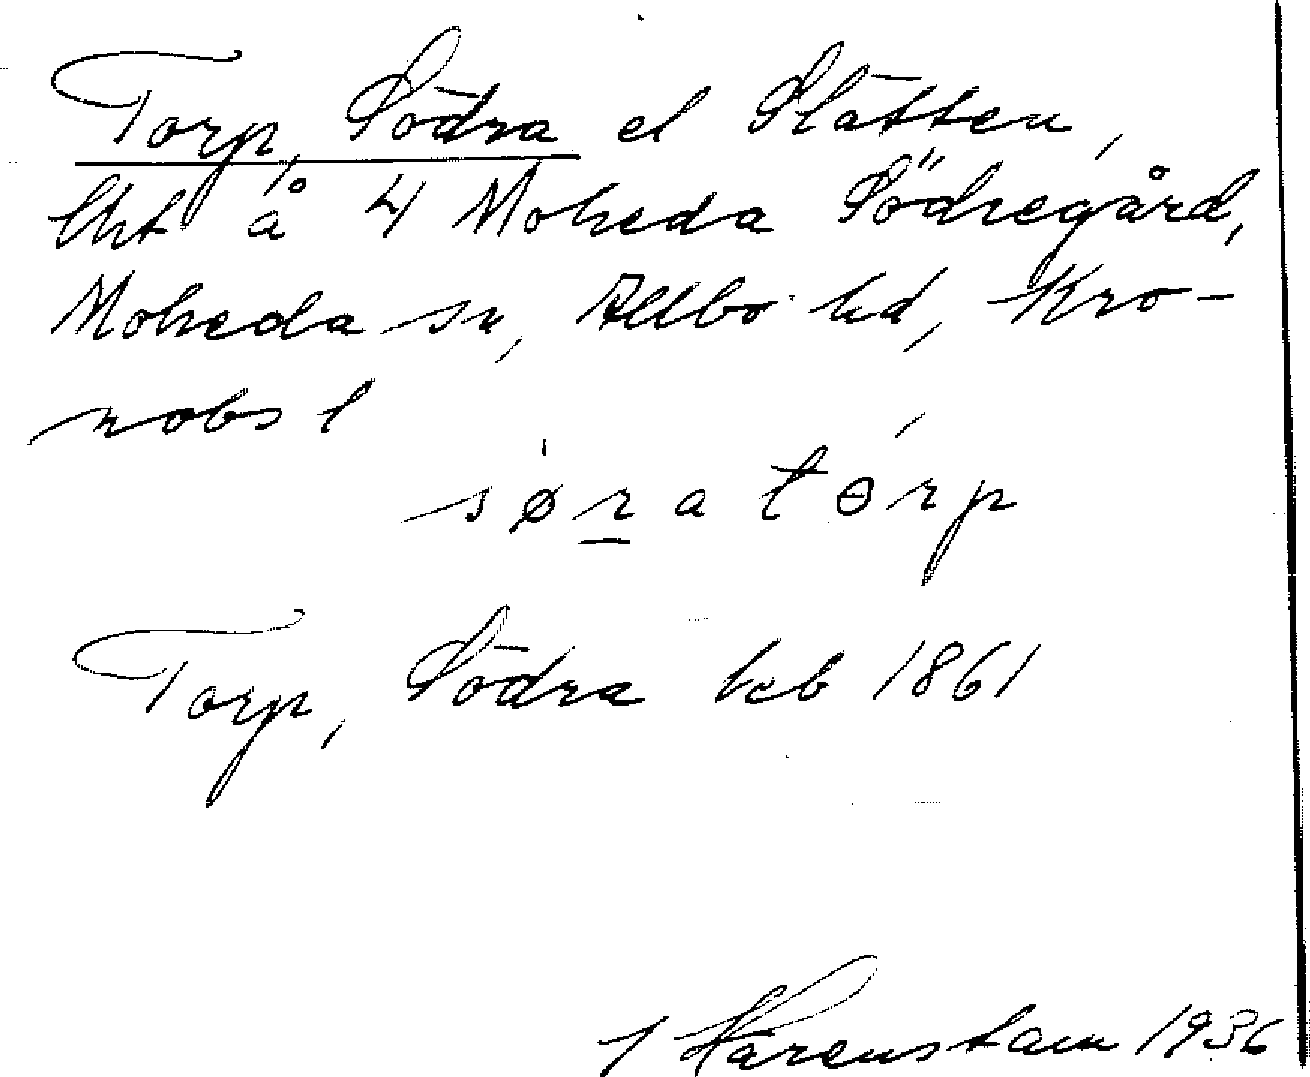 Torp, Södra el Slätten,
lht å 4 Moheda Södregård,
Moheda sn, Allbo hd, Kro-
nobs l
søra tørp
Torp, Södra beb 1861
Härenstam 1936